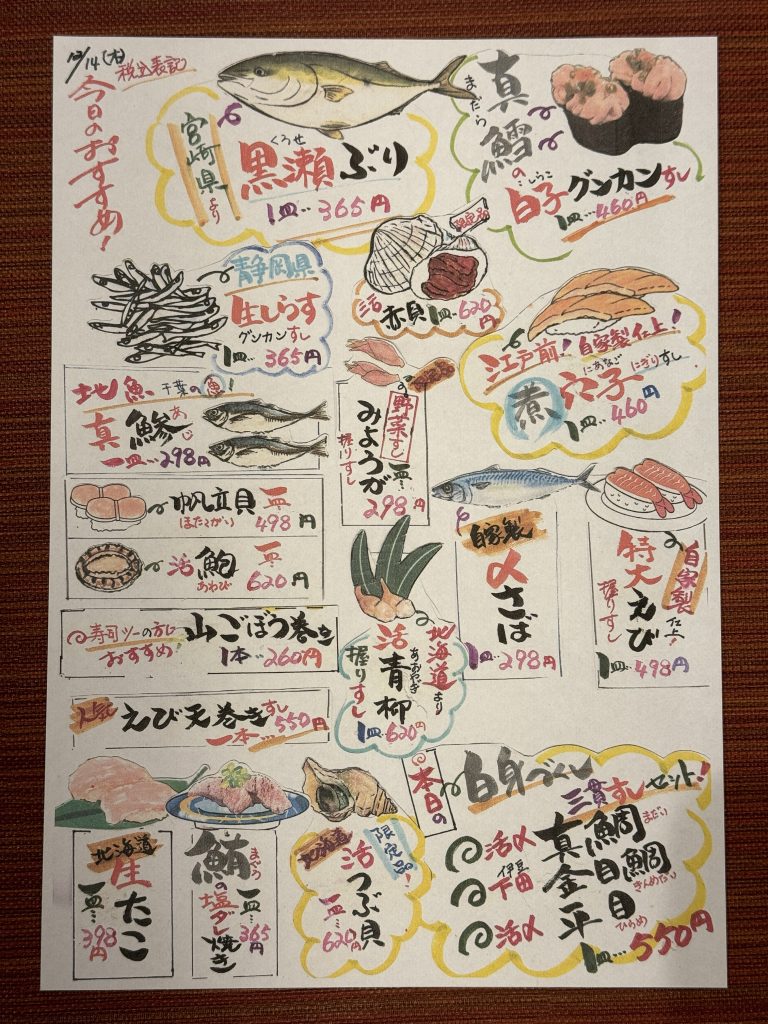 12/14(木)
税込表記
今日のおすすめ!
宮崎県より
くろせ
黒瀬ぶり
1皿…365円
まだら
真鱈の
しらこ
白子グンカンすし
1皿…460円
静岡県
生しらす
グンカンすし
1皿…365円
限定品
活赤貝1皿…620円
江戸前!自家製仕上!
にあなご にぎりすし
煮穴子
1皿…460円
地魚 千葉の魚!
真鯵
あじ
一皿…298円
野菜すし
みょうが
握りすし
一皿…298円
帆立貝
ほたてがい
一皿…498円
活鮑
あわび
一皿…620円
自家製
〆さば
1皿…298円
自家製仕上!
特大えび
握りすし
1皿…498円
寿司ツーの方に
おすすめ!
山ごぼう巻き
1本…260円
北海道より
活青柳
あおやぎ
握りすし
1皿…620円
人気
えび天巻きすし
一本…550円
北海道
生たこ
一皿…398円
鮪の塩ダレ焼き
まぐろ
一皿…365円
北海道
限定品!
活つぶ貝
一皿…620円
本日の
白身づくし
三貫すしセット!
活〆 真鯛 まだい
伊豆
下田 金目鯛 きんめだい
活〆 平目 ひらめ
1皿…550円